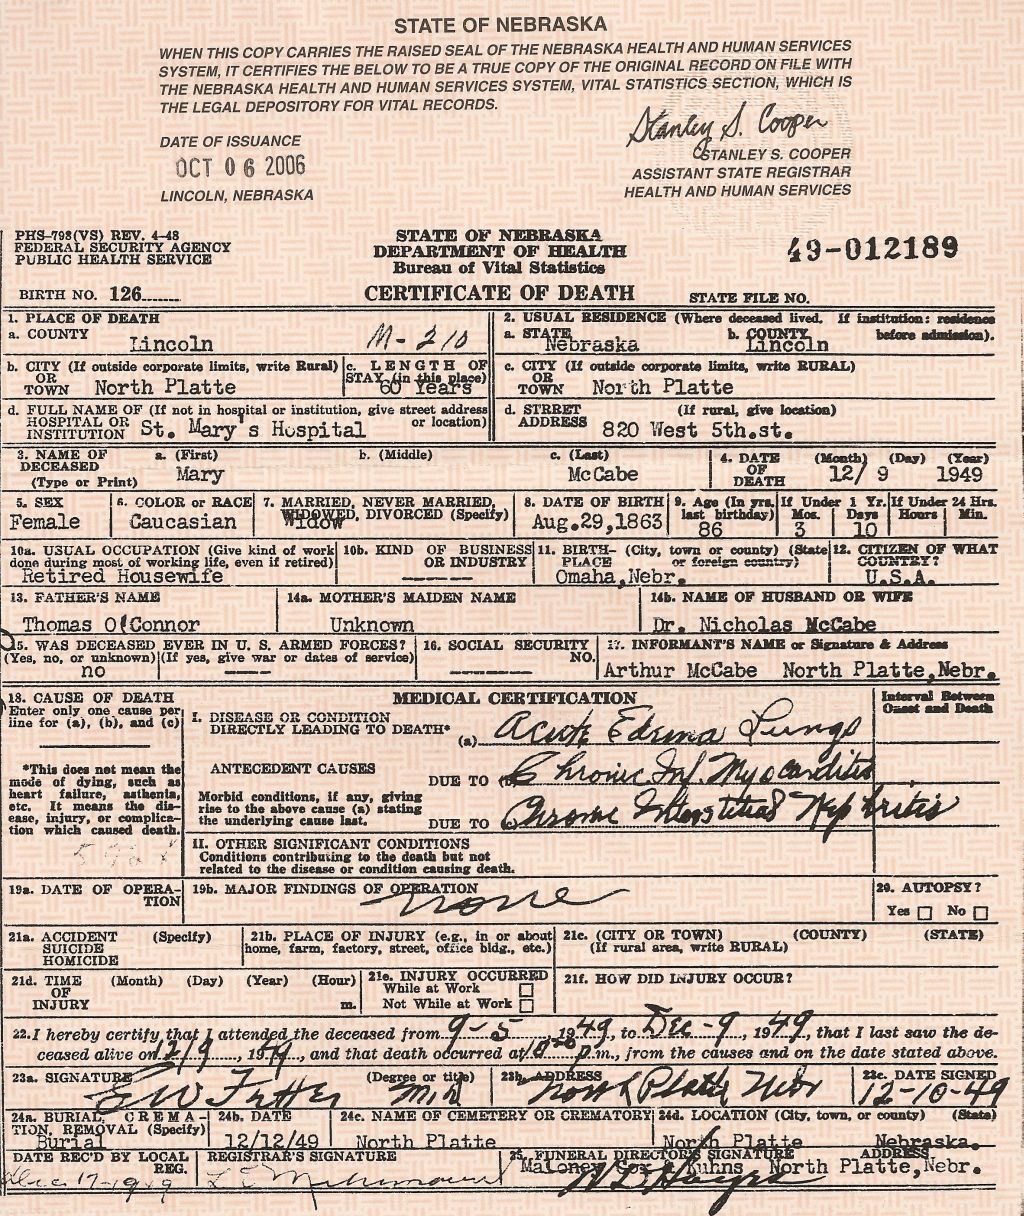 STATE OF NEBRASKA
WHEN THIS COPY CARRIES THE RAISED SEAL OF THE NEBRASKA HEALTH AND HUMAN SERVICES
SYSTEM, IT CERTIFIES THE BELOW TO BE A TRUE COPY OF THE ORIGINAL RECORD ON FILE WITH
THE NEBRASKA HEALTH AND HUMAN SERVICES SYSTEM, VITAL STATISTICS SECTION, WHICH IS
THE LEGAL DEPOSITORY FOR VITAL RECORDS.
DATE OF ISSUANCE
OCT 06 2006
LINCOLN, NEBRASKA
Stanley S. Cooper
STANLEY S. COOPER
ASSISTANT STATE REGISTRAR
HEALTH AND HUMAN SERVICES
PHS-798(VS) REV. 4-48
FEDERAL SECURITY AGENCY
PUBLIC HEALTH SERVICE
STATE OF NEBRASKA
DEPARTMENT OF HEALTH
Bureau of Vital Statistics
49-012189
BIRTH NO. 126
CERTIFICATE OF DEATH
STATE FILE NO.
1. PLACE OF DEATH
a. COUNTY
Lincoln
M-210
2. USUAL RESIDENCE (Where deceased lived. If institution: residence before admission).
a. STATE
Nebraska
b. COUNTY
Lincoln
b. CITY (If outside corporate limits, write Rural)
OR
TOWN North Platte
c. LENGTH OF
STAY (in this place)
60 Years
c. CITY (If outside corporate limits, write RURAL)
OR
TOWN North Platte
d. FULL NAME OF (If not in hospital or institution, give street address or location)
HOSPITAL OR
INSTITUTION St. Mary's Hospital
d. STREET (If rural, give location)
ADDRESS 820 West 5th.st.
3. NAME OF DECEASED
(Type or Print)
a. (First)
Mary
b. (Middle)
c. (Last)
McCabe
4. DATE OF DEATH
(Month) (Day) (Year)
12/ 9 1949
5. SEX
Female
6. COLOR or RACE
Caucasian
7. MARRIED, NEVER MARRIED,
WIDOWED, DIVORCED (Specify)
Widow
8. DATE OF BIRTH
Aug.29,1863
9. Age (In yrs. last birthday)
86
If Under 1 Yr.
Mos. Days
3 10
If Under 24 Hrs.
Hours Min.
10a. USUAL OCCUPATION (Give kind of work
done during most of working life, even if retired)
Retired Housewife
10b. KIND OF BUSINESS
OR INDUSTRY
11. BIRTH-PLACE (City, town or county) (State or foreign country)
Omaha,Nebr.
12. CITIZEN OF WHAT
COUNTRY?
U.S.A.
13. FATHER'S NAME
Thomas O'Connor
14a. MOTHER'S MAIDEN NAME
Unknown
14b. NAME OF HUSBAND OR WIFE
Dr. Nicholas McCabe
15. WAS DECEASED EVER IN U. S. ARMED FORCES?
(Yes, no, or unknown) (If yes, give war or dates of service)
no
16. SOCIAL SECURITY
NO.
17. INFORMANT'S NAME or Signature & Address
Arthur McCabe North Platte,Nebr.
18. CAUSE OF DEATH
Enter only one cause per
line for (a), (b), and (c)
*This does not mean the
mode of dying, such as
heart failure, asthenia,
etc. It means the dis-
ease, injury, or complica-
tion which caused death.
MEDICAL CERTIFICATION
Interval Between
Onset and Death
I. DISEASE OR CONDITION
DIRECTLY LEADING TO DEATH*
(a) Acute Edema Lungs
ANTECEDENT CAUSES
DUE TO Chronic Inf. Myocarditis
Morbid conditions, if any, giving
rise to the above cause (a) stating
the underlying cause last.
DUE TO Chronic Interstitial Nephritis
II. OTHER SIGNIFICANT CONDITIONS
Conditions contributing to the death but not
related to the disease or condition causing death.
19a. DATE OF OPERA-
TION
19b. MAJOR FINDINGS OF OPERATION
none
20. AUTOPSY?
Yes No
21a. ACCIDENT (Specify)
SUICIDE
HOMICIDE
21b. PLACE OF INJURY (e.g., in or about
home, farm, factory, street, office bldg., etc.)
21c. (CITY OR TOWN) (COUNTY) (STATE)
(If rural area, write RURAL)
21d. TIME (Month) (Day) (Year) (Hour)
OF
INJURY m.
21e. INJURY OCCURRED
While at Work
Not While at Work
21f. HOW DID INJURY OCCUR?
22. I hereby certify that I attended the deceased from 9-5, 1949, to Dec-9, 1949, that I last saw the de-
ceased alive on 12/9, 1949, and that death occurred at p.m., from the causes and on the date stated above.
23a. SIGNATURE (Degree or title)
M.D.
23b. ADDRESS
North Platte Nebr
23c. DATE SIGNED
12-10-49
24a. BURIAL, CREMA-
TION, REMOVAL (Specify)
Burial
24b. DATE
12/12/49
24c. NAME OF CEMETERY OR CREMATORY
North Platte
24d. LOCATION (City, town, or county) (State)
North Platte Nebraska.
DATE REC'D BY LOCAL
REG.
Dec 17-1949
REGISTRAR'S SIGNATURE
25. FUNERAL DIRECTOR'S SIGNATURE ADDRESS
Maloney Cox & Kuhns North Platte,Nebr.